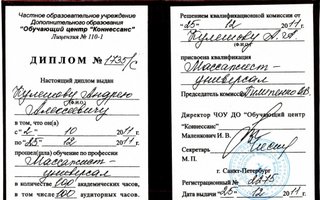 Частное образовательное учреждение
Дополнительного образования
"Обучающий центр "Коннессанс"
Лицензия № 110-1
ДИПЛОМ № 1735/с
Настоящий диплом выдан
Кулешову Андрею
(Ф.И.О.)
Алексеевичу
в том, что он(а)
с «2» 10 2011 г.
по «25» 12 2011 г.
прошел(ла) обучение по профессии
Массажист-
универсал
в количестве 600 академических часов,
в том числе 600 аудиторных часов.
Решением квалификационной комиссии от
«25» 12 2011 г.
Кулешову А.А.
(Ф.И.О.)
присвоена квалификация
Массажист-
универсал
Председатель комиссии
Директор ЧОУ ДО "Обучающий
центр "Коннессанс"
Маленкович И. В.
Секретарь
М. П.
г. Санкт-Петербург
Регистрационный №
Дата выдачи «25» 12 2011 г.